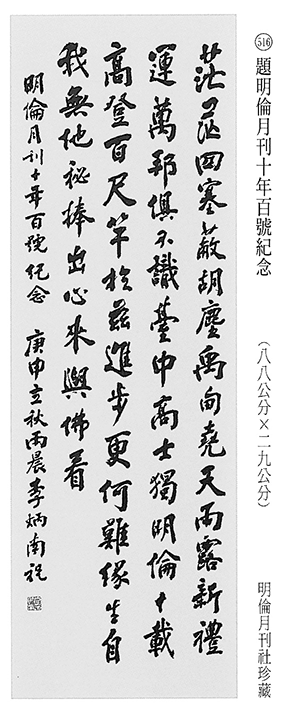 516 題明倫月刊十年百號紀念 (八八公分×二九公分) 明倫月刊社珍藏
茫茫四塞蔽胡塵禹甸堯天雨露新禮
運萬邦俱不識臺中高士獨明倫十載
高登百尺竿於茲進步更何難緣生自
我無他祕捧出心來與佛看
明倫月刊十年百號紀念 庚申立秋雨晨李炳南祝